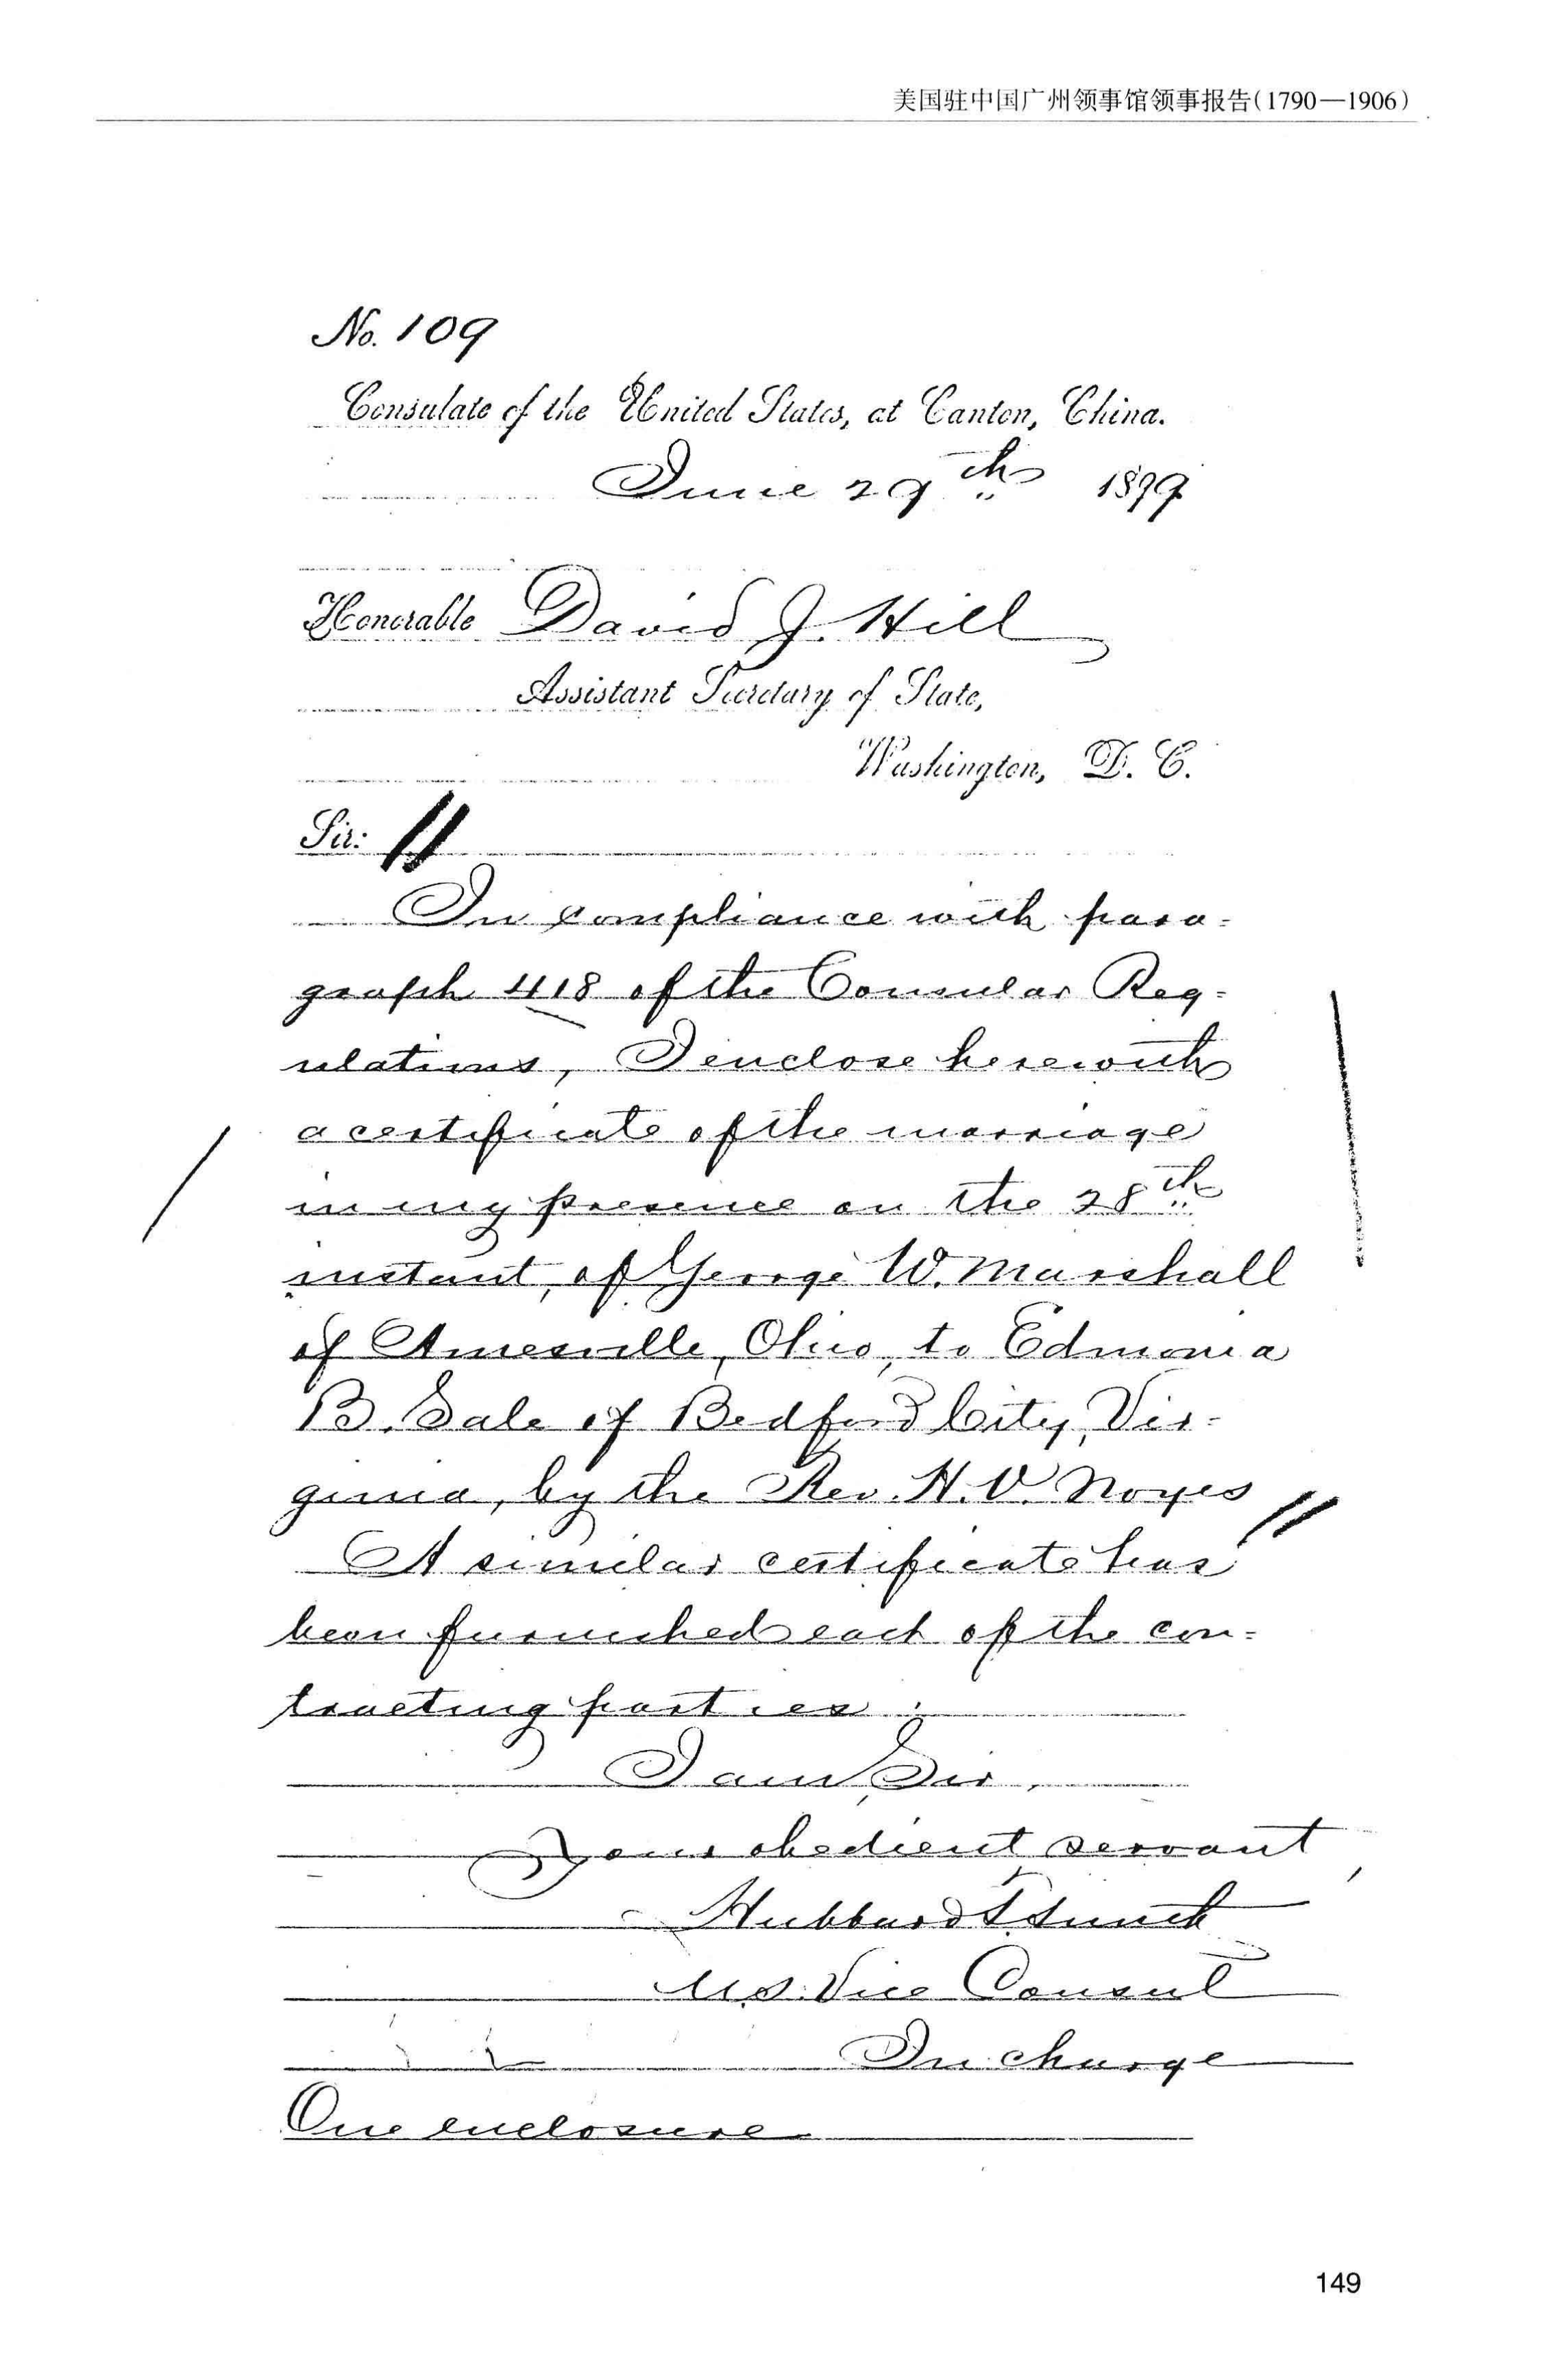 美国驻中国广州领事馆领事报告(1790—1906)
No. 109
Consulate of the United States, at Canton, China.
June 29th 1899
Honorable David J. Hill
Assistant Secretary of State,
Washington, D. C.
Sir:
In compliance with para=
graph 418 of the Consular Reg=
ulations, I enclose herewith
a certificate of the marriage
in my presence on the 28th
instant, of George W. Marshall
of Amesville, Ohio, to Edmonia
B. Sale of Bedford City, Vir-
ginia, by the Rev. H. V. Noyes
A similar certificate has
been furnished each of the con=
tracting parties.
I am Sir,
Your obedient servant,
Hubbard T. Smith
U.S. Vice Consul
In charge
One enclosure
149